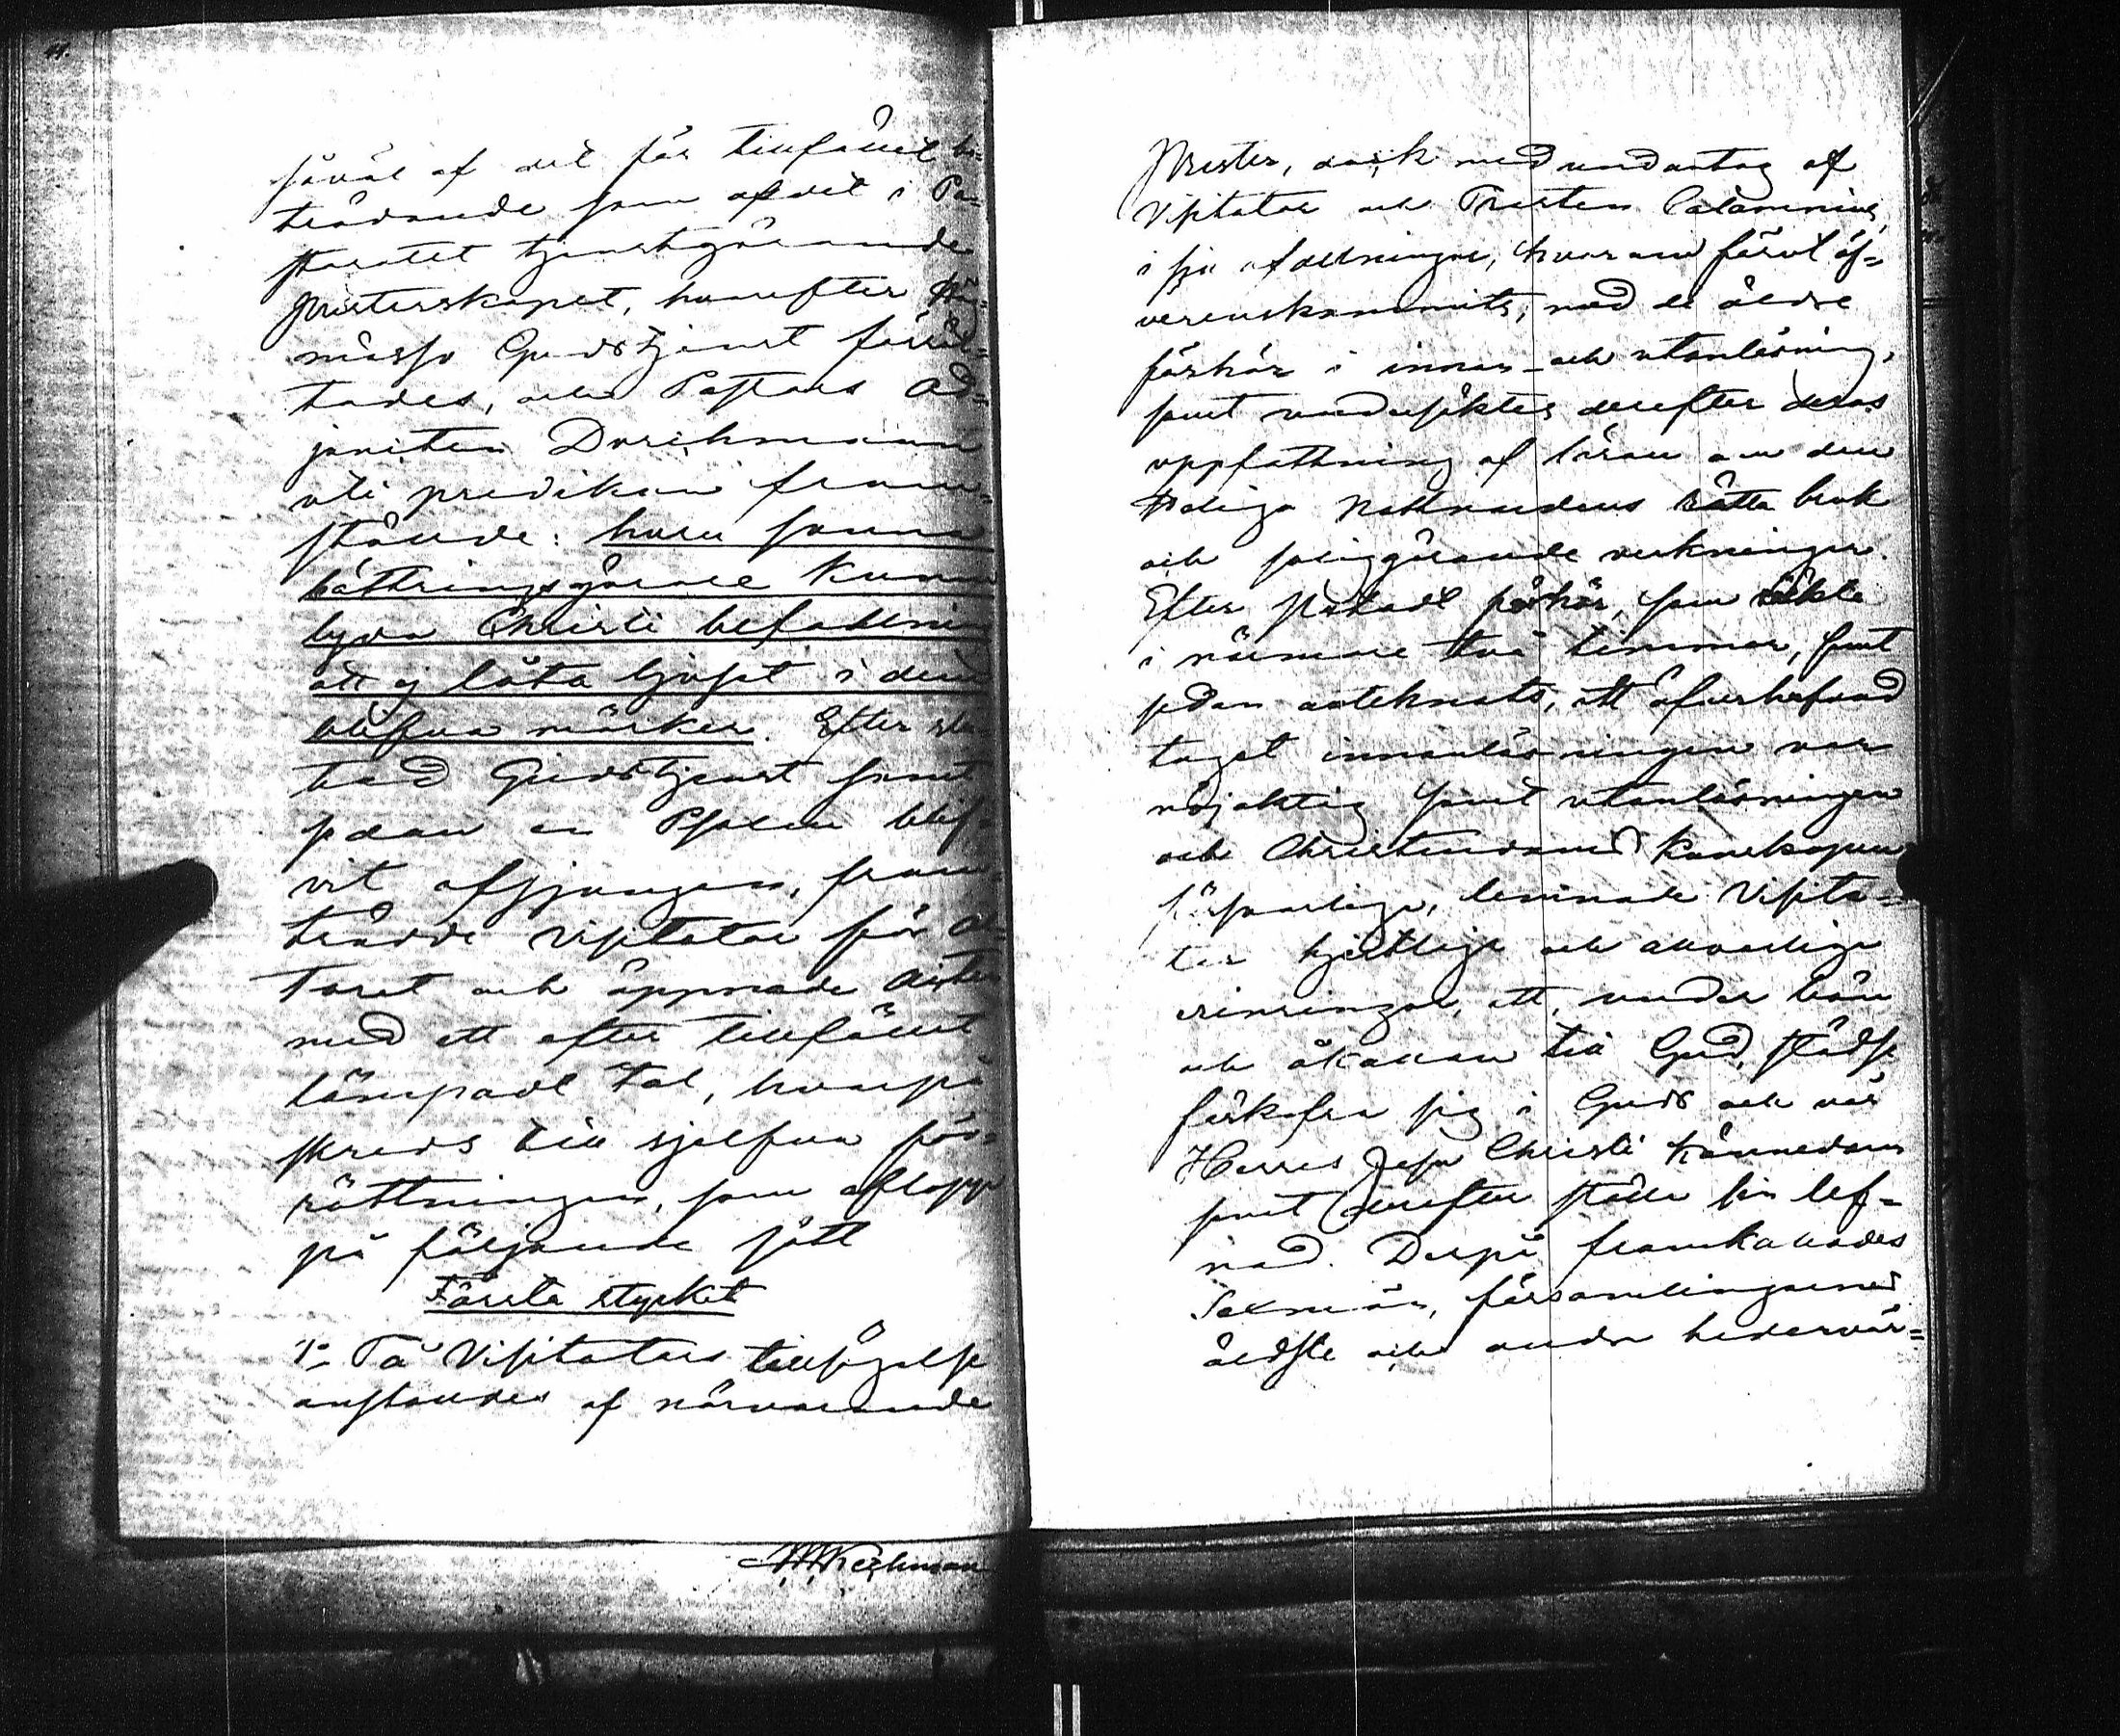 44.
såväl af det för tillfället bi-
trädande som af det i Pa-
storatet tjenstgörande
Presterskapet, hvarefter Hög-
messo Gudstjenst förrät-
tades, och Pastors Ad-
juncten Dorchmann
uti predikan fram-
stälde: huru sanna
bättringsgörare kunna
lyda Christi befallning
att ej låta ljuset i dem
blifva mörker. Efter slu-
tad Gudstjenst samt
sedan en Psalm blif-
vit afsjungen, fram-
trädde Visitator för Al-
taret och öppnade Acten
med ett efter tillfället
lämpadt Tal, hvarpå
skreds till sjelfva för-
rättningen, som aflopp
på följande sätt
Första stycket
1o På Visitators tillsägelse
anstäldes af närvarande
Prester, dock med undantag af
Visitator och Prosten Calamnius,
i sju afdelningar, hvarom förut öf-
verenskommits, med de äldre
förhör i innan- och utanläsning,
samt undersöktes derefter deras
uppfattning af läran om den
Heliga Nattvardens rätta bruk
och saliggörande verkningar.
Efter slutadt förhör, som räckte
i närmare två timmar, samt
sedan antecknats, att öfverhufvud
taget innanläsningen var
nöjaktig samt utanläsningen
och Christendoms kunskapen
försvarliga, lemnade Visita-
tor hjertliga och allvarliga
erinringar, att, under bön
och åkallan till Gud, städse
förkofra sig i Guds och vår
Herres Jesu Christi kännedom
samt derefter ställa sin lef-
nad. Derpå framkallades
Sexmän, församlingarnes
äldste och andra hedervär-